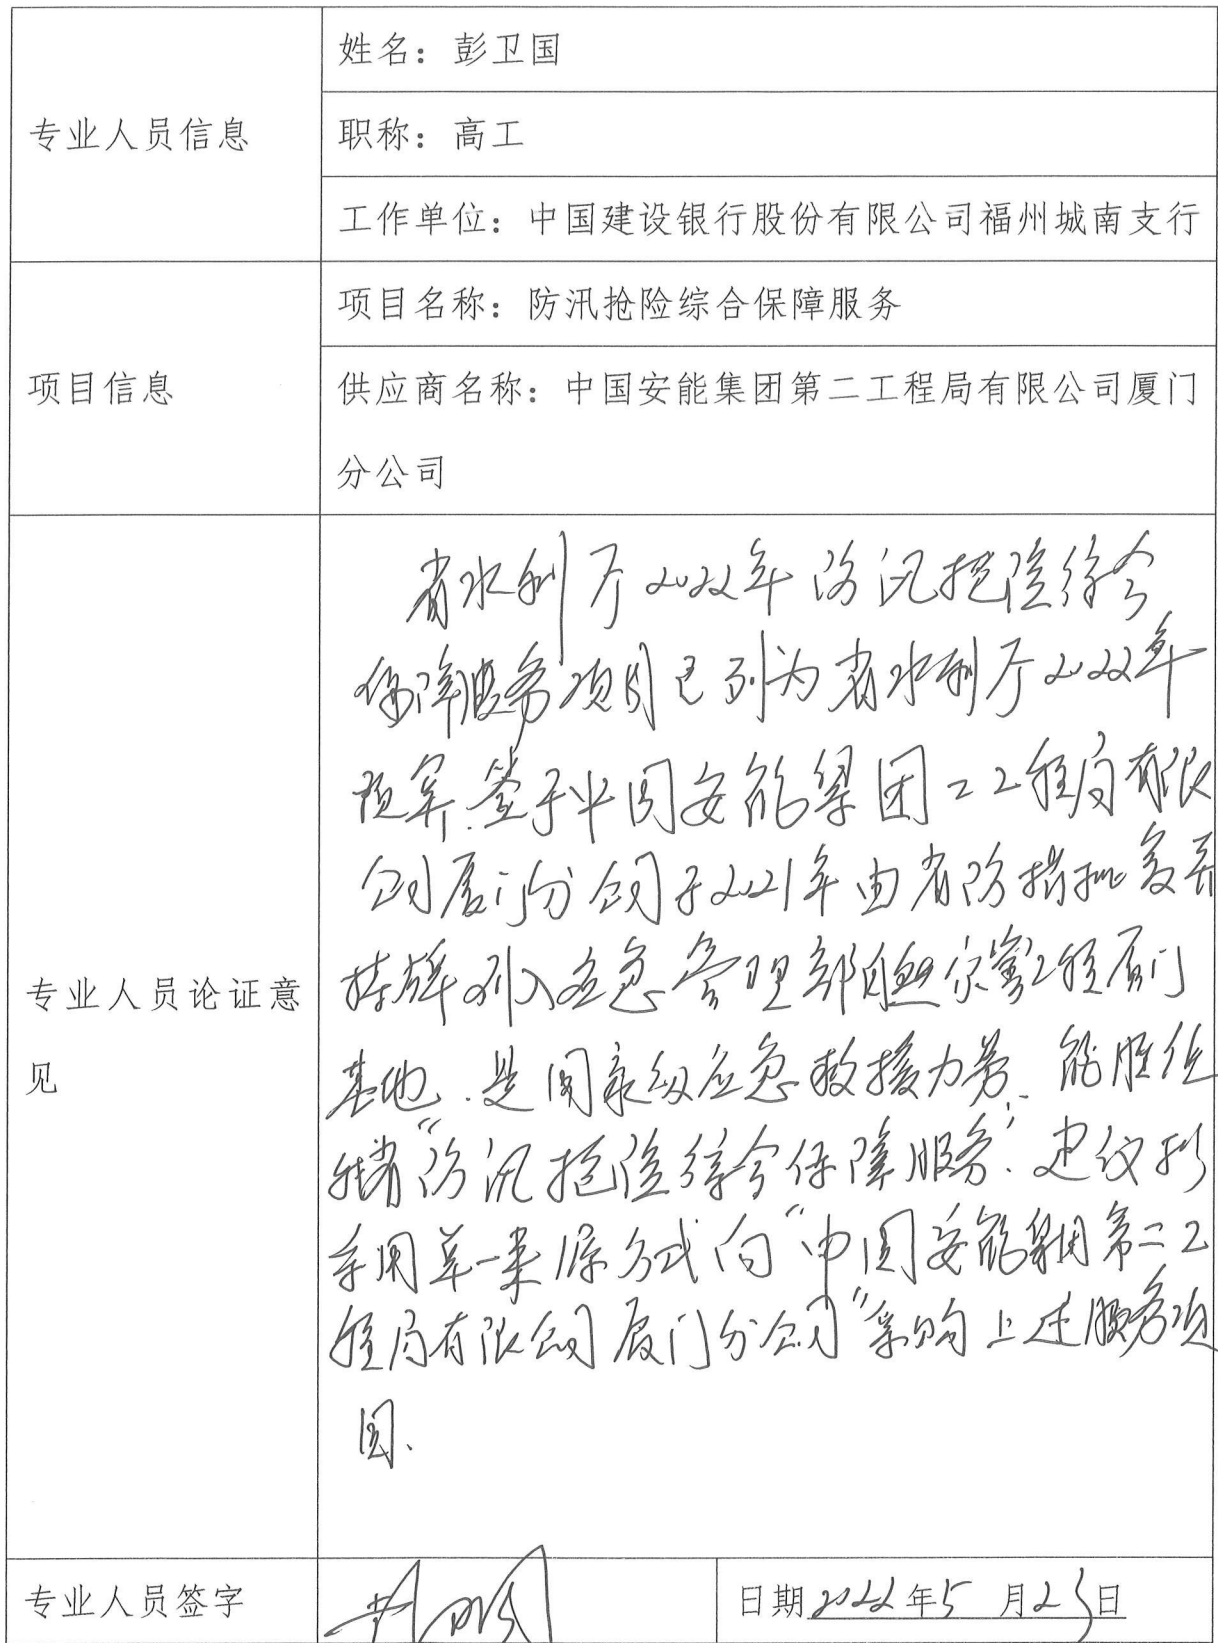 专业人员信息
姓名：彭卫国
职称：高工
工作单位：中国建设银行股份有限公司福州城南支行
项目信息
项目名称：防汛抢险综合保障服务
供应商名称：中国安能集团第二工程局有限公司厦门
分公司
专业人员论证意
见
省水利厅2022年防汛抢险综合
保障服务项目已列为省水利厅2022年
预算.鉴于中国安能集团二工程局有限
公司厦门分公司于2021年由省防指批复并
挂牌列入应急管理部自然灾害工程厦门
基地.是国家级应急救援力量、能胜任
"防汛抢险综合保障服务".建议
采用单一来源方式向"中国安能集团第二工
程局有限公司厦门分公司"采购上述服务项
目.
专业人员签字
日期2022年5月23日